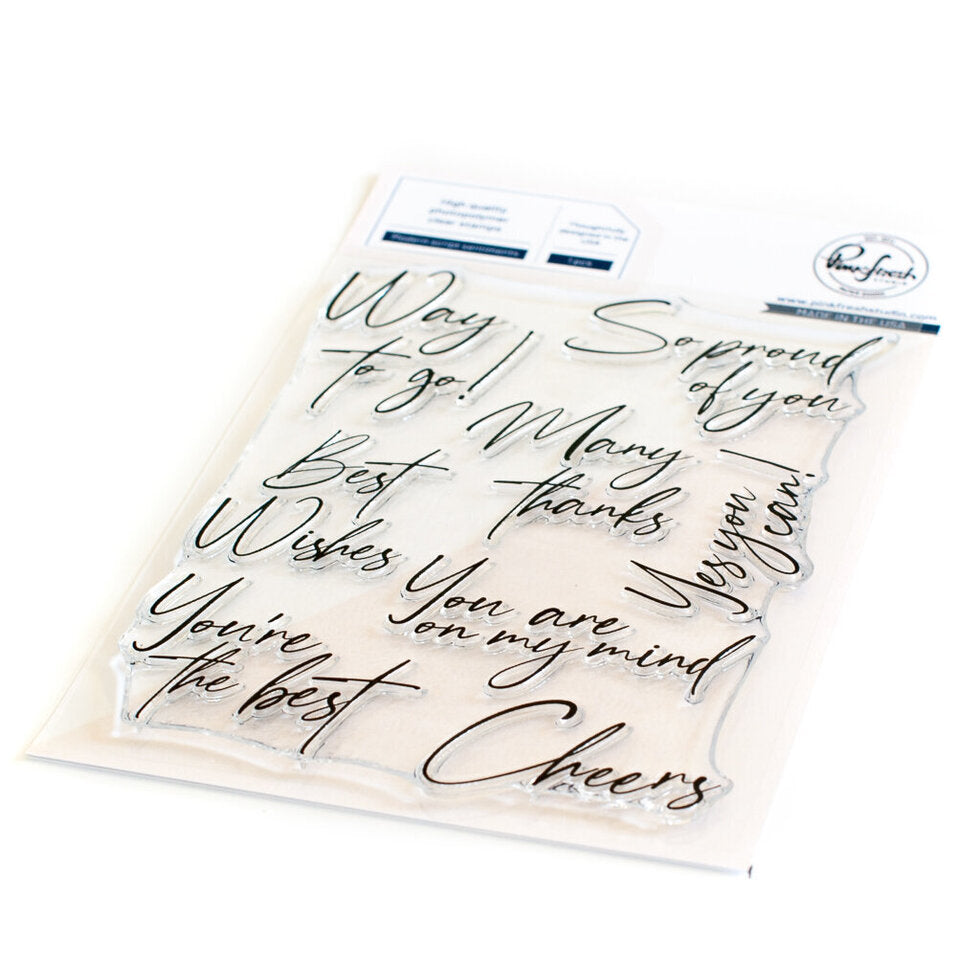 High quality
photopolymer
clear stamps
Thoughtfully
designed in the
USA
Modern script sentiments
1 pck
Pinkfresh
STUDIO
www.pinkfreshstudio.com
MADE IN THE USA
Way
to go!
So proud
of you
Many
thanks
Best
Wishes
Yes you
can!
You are
on my mind
You're
the best
Cheers